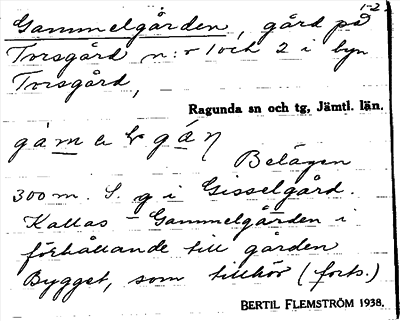 1-2.
Gammelgården, gård på
Torsgård n:r 1 och 2 i byn
Torsgård,
Ragunda sn och tg, Jämtl. län.
Belägen
300 m. S. g i Gisselgård.
Kallas Gammelgården i
förhållande till gården
Bygget, som tillhör (forts.)
BERTIL FLEMSTRÖM 1938.